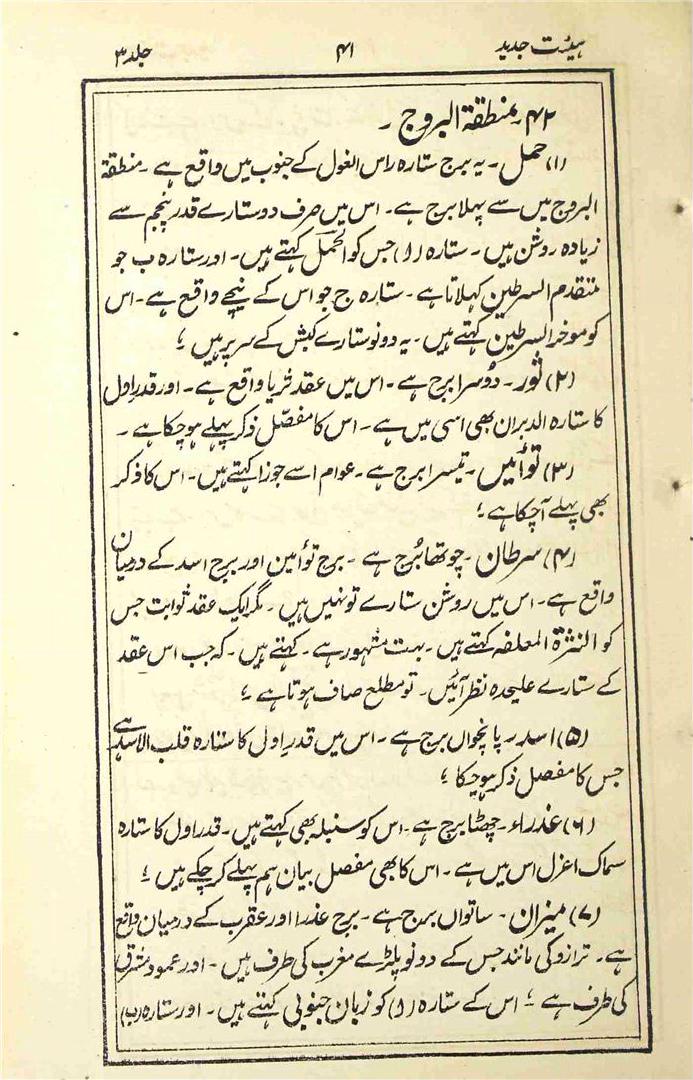 ہیئت جدید ۴۱ جلد ۳
۴۲۔ منطقۃ البروج ۔
(۱) حمل ۔ یہ برج ستارہ راس الغول کے جنوب میں واقع ہے ۔ منطقۃ
البروج میں سے پہلا برج ہے ۔ اس میں صرف دو ستارے قدر پنجم سے
زیادہ روشن ہیں ۔ ستارہ (ا) جس کو الحمل کہتے ہیں ۔ اور ستارہ ب جو
متقدم السرطین کہلاتا ہے ۔ ستارہ ج جو اس کے نیچے واقع ہے ۔ اس
کو موخر السرطین کہتے ہیں ۔ یہ دونو ستارے کبش کے سر پر ہیں ؛
(۲) ثور ۔ دُوسرا برج ہے ۔ اس میں عقد ثریا واقع ہے ۔ اور قدر اول
کا ستارہ الدبران بھی اسی میں ہے ۔ اس کا مفصّل ذکر پہلے ہو چکا ہے ۔
(۳) توأئیں ۔ تیسرا برج ہے ۔ عوام اسے جوزا کہتے ہیں ۔ اس کا ذکر
بھی پہلے آچکا ہے ؛
(۴) سرطان ۔ چوتھا بُرج ہے ۔ برج توأمین اور برج اسد کے درمیان
واقع ہے ۔ اس میں روشن ستارے تو نہیں ہیں ۔ مگر ایک عقد ثوابت جس
کو النثرۃ المعلفہ کہتے ہیں ۔ بہت مشہور ہے ۔ کہتے ہیں ۔ کہ جب اس عقد
کے ستارے علیحدہ نظر آئیں ۔ تو مطلع صاف ہوتا ہے ؛
(۵) اسد ۔ پانچواں برج ہے ۔ اس میں قدر اولیٰ کا ستارہ قلب الاسد ہے
جس کا مفصل ذکر ہوچکا ؛
(۶) عذراء ۔ چھٹا برج ہے ۔ اس کو سنبلہ بھی کہتے ہیں ۔ قدر اول کا ستارہ
سماک اعزل اس میں ہے ۔ اس کا بھی مفصل بیان ہم پہلے کر چکے ہیں ؛
(۷) میزان ۔ ساتواں برج ہے ۔ برج عذرا اور عقرب کے درمیان واقع
ہے ۔ ترازو کی مانند جس کے دونو پلڑے مغرب کی طرف ہیں ۔ اور عمود مشرق
کی طرف ہے ؛ اس کے ستارہ (ا) کو زبان جنوبی کہتے ہیں ۔ اور ستارہ (ب)